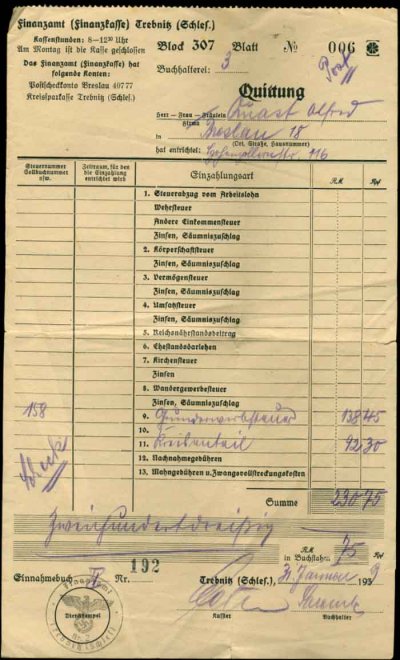 Finanzamt (Finanzkasse) Trebnitz (Schles.)
Kassenstunden: 8–12³⁰ Uhr
Am Montag ist die Kasse geschlossen
Das Finanzamt (Finanzkasse) hat
folgende Konten:
Postscheckkonto Breslau 40777
Kreissparkasse Trebnitz (Schles.)
Block 307 Blatt № 006
Buchhalterei: 3
Post
Quittung
Herr – Frau – Fräulein Quast Alfred
Firma
in Breslau 18
(Ort, Straße, Hausnummer)
hat entrichtet: 116
Steuernummer
Sollbuchnummer
usw.
Zeitraum, für den
die Einzahlung
entrichtet wird
Einzahlungsart
RM Rpf
1. Steuerabzug vom Arbeitslohn
Wehrsteuer
Andere Einkommensteuer
Zinsen, Säumniszuschlag
2. Körperschaftsteuer
Zinsen, Säumniszuschlag
3. Vermögensteuer
Zinsen, Säumniszuschlag
4. Umsatzsteuer
Zinsen, Säumniszuschlag
5. Reichsnährstandsbeitrag
6. Ehestandsdarlehen
7. Kirchensteuer
Zinsen
8. Wandergewerbesteuer
Zinsen, Säumniszuschlag
158 9. Grunderwerbsteuer 138 45
10.
11. Kreisanteil 92 30
12. Nachnahmegebühren
13. Mahngebühren u. Zwangsvollstreckungskosten
Scheck
Summe 230 75
Zweihundertdreißig RM 75 Rpf
in Buchstaben
Einnahmebuch II Nr. 192
Trebnitz (Schles.), 31. Januar 1939
Dienststempel
Finanzamt
Kassier Buchhalter